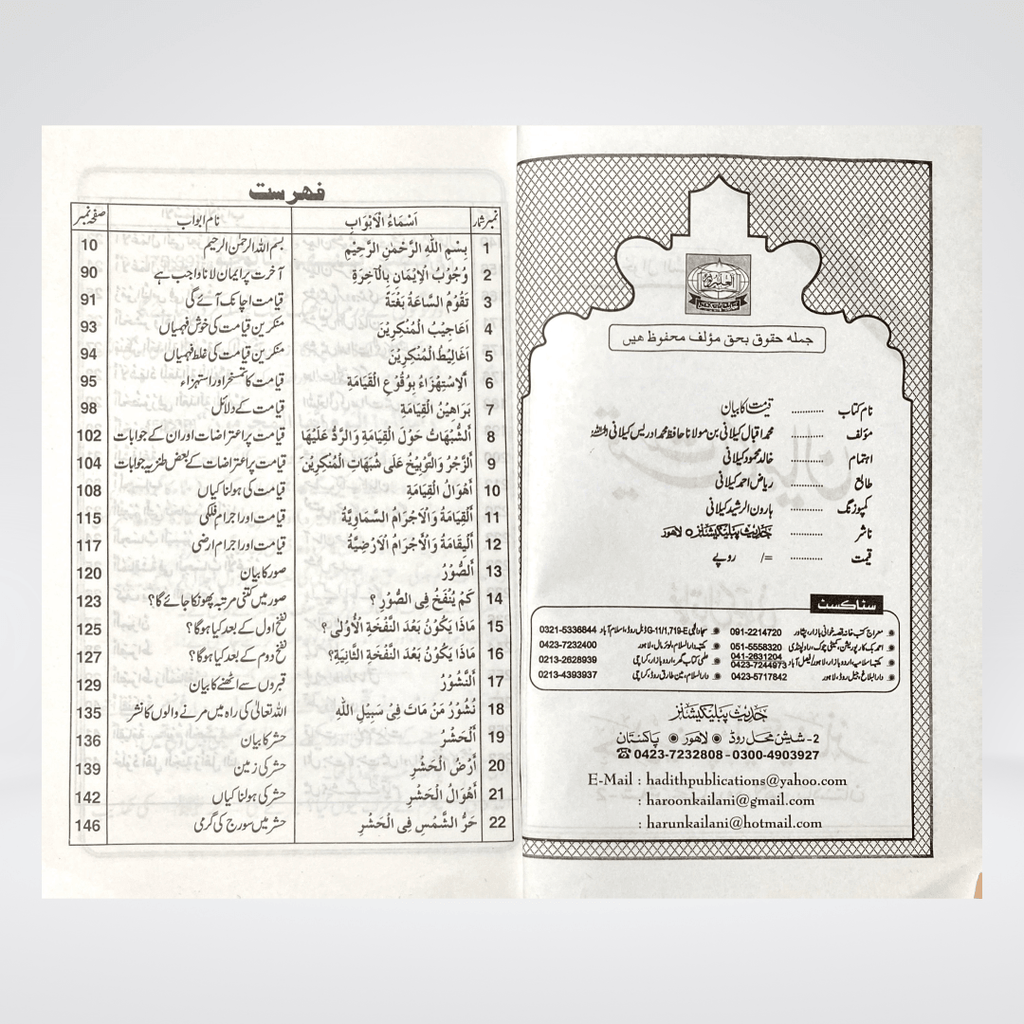 جملہ حقوق بحق مؤلف محفوظ ھیں
نام کتاب ............ قیامت کا بیان
مؤلف ............ محمد اقبال کیلانی بن مولانا حافظ محمد ادریس کیلانی رحمہ اللہ
اہتمام ............ خالد محمود کیلانی
طابع ............ ریاض احمد کیلانی
کمپوزنگ ............ ہارون الرشید کیلانی
ناشر ............ حدیث پبلیکیشنز، لاہور
قیمت ............ =/ روپے
سٹاکسٹ
معراج کتب خانہ قصہ خوانی بازار، پشاور 091-2214720
احمد بک کارپوریشن، کمیٹی چوک، راولپنڈی 051-5558320
مکتبہ اسلامیہ، اردو بازار، لاہور/فیصل آباد 041-2631204 0423-7244973
دارالبلاغ، جیل روڈ، لاہور 0423-5717842
G-11/1,719-E ڈبل روڈ، اسلام آباد 0321-5336844
مکتبہ دارالسلام، لوئر مال، لاہور 0423-7232400
علمی کتاب گھر، اردو بازار، کراچی 0213-2628939
دارالسلام، مین طارق روڈ، کراچی 0213-4393937
حدیث پبلیکیشنز
2- شیش محل روڈ ◉ لاھور ◉ پاکستان
☎ 0423-7232808 - 0300-4903927
E-Mail : hadithpublications@yahoo.com
: haroonkailani@gmail.com
: harunkailani@hotmail.com
فہرست
نمبر شمار اَسْمَاءُ الْاَبْوَابِ نام ابواب صفحہ نمبر
1 بِسْمِ اللّٰهِ الرَّحْمٰنِ الرَّحِيْمِ بسم اللہ الرحمٰن الرحیم 10
2 وُجُوْبُ الْاِيْمَانِ بِالْآخِرَةِ آخرت پر ایمان لانا واجب ہے 90
3 تَقُوْمُ السَّاعَةُ بَغْتَةً قیامت اچانک آئے گی 91
4 اَعَاجِيْبُ الْمُنْكِرِيْنَ منکرین قیامت کی خوش فہمیاں 93
5 اَغَالِيْطُ الْمُنْكِرِيْنَ منکرین قیامت کی غلط فہمیاں 94
6 اَلْاِسْتِهْزَاءُ بِوُقُوْعِ الْقِيَامَةِ قیامت کا تمسخر اور استہزاء 95
7 بَرَاهِيْنُ الْقِيَامَةِ قیامت کے دلائل 98
8 اَلشُّبُهَاتُ حَوْلَ الْقِيَامَةِ وَالرَّدُّ عَلَيْهَا قیامت پر اعتراضات اور ان کے جوابات 102
9 اَلزَّجْرُ وَالتَّوْبِيْخُ عَلٰى شُبُهَاتِ الْمُنْكِرِيْنَ قیامت پر اعتراضات کے بعض طنزیہ جوابات 104
10 اَهْوَالُ الْقِيَامَةِ قیامت کی ہولناکیاں 108
11 اَلْقِيَامَةُ وَالْاَجْرَامُ السَّمَاوِيَّةُ قیامت اور اجرام فلکی 115
12 اَلْقِيَامَةُ وَالْاَجْرَامُ الْاَرْضِيَّةُ قیامت اور اجرام ارضی 117
13 اَلصُّوْرُ صور کا بیان 120
14 كَمْ يُنْفَخُ فِى الصُّوْرِ ؟ صور میں کتنی مرتبہ پھونکا جائے گا؟ 123
15 مَاذَا يَكُوْنُ بَعْدَ النَّفْخَةِ الْاُوْلٰى ؟ نفخ اول کے بعد کیا ہوگا؟ 125
16 مَاذَا يَكُوْنُ بَعْدَ النَّفْخَةِ الثَّانِيَةِ؟ نفخ دوم کے بعد کیا ہوگا؟ 127
17 اَلنُّشُوْرُ قبروں سے اٹھنے کا بیان 129
18 نُشُوْرُ مَنْ مَاتَ فِىْ سَبِيْلِ اللّٰهِ اللہ تعالیٰ کی راہ میں مرنے والوں کا نشر 135
19 اَلْحَشْرُ حشر کا بیان 136
20 اَرْضُ الْحَشْرِ حشر کی زمین 139
21 اَهْوَالُ الْحَشْرِ حشر کی ہولناکیاں 142
22 حَرُّ الشَّمْسِ فِى الْحَشْرِ حشر میں سورج کی گرمی 146